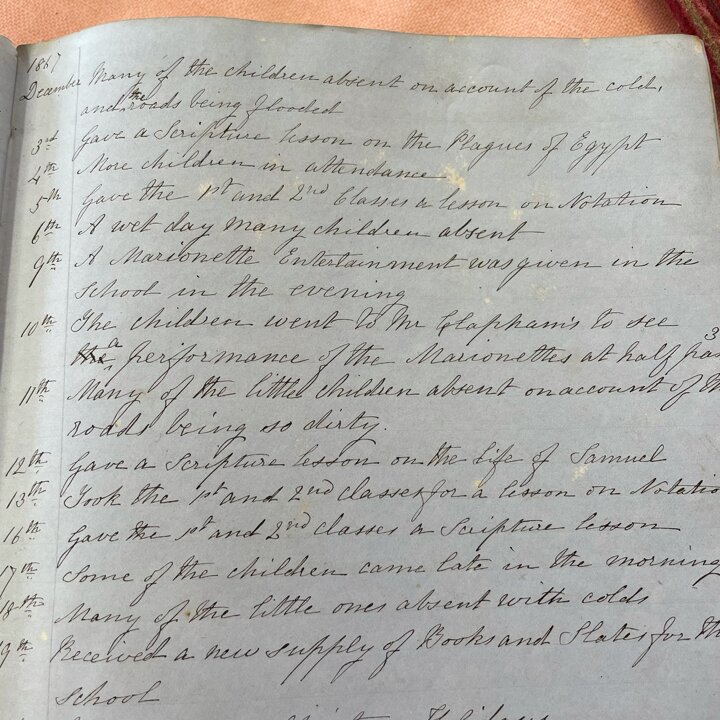 1867
December Many of the children absent on account of the cold,
and the roads being flooded
3rd Gave a Scripture lesson on the Plagues of Egypt
4th More children in attendance
5th Gave the 1st and 2nd Classes a lesson on Notation
6th A wet day many children absent
9th A Marionette Entertainment was given in the
School in the evening
10th The children went to Mr Clapham's to see
a performance of the Marionettes at half pas 3
11th Many of the little children absent on account of th
roads being so dirty.
12th Gave a Scripture lesson on the life of Samuel
13th Took the 1st and 2nd classes for a lesson on Notatio
16th Gave the 1st and 2nd classes a Scripture lesson
17th Some of the children came late in the morning
18th Many of the little ones absent with colds
19th Received a new supply of Books and Slates for th
School